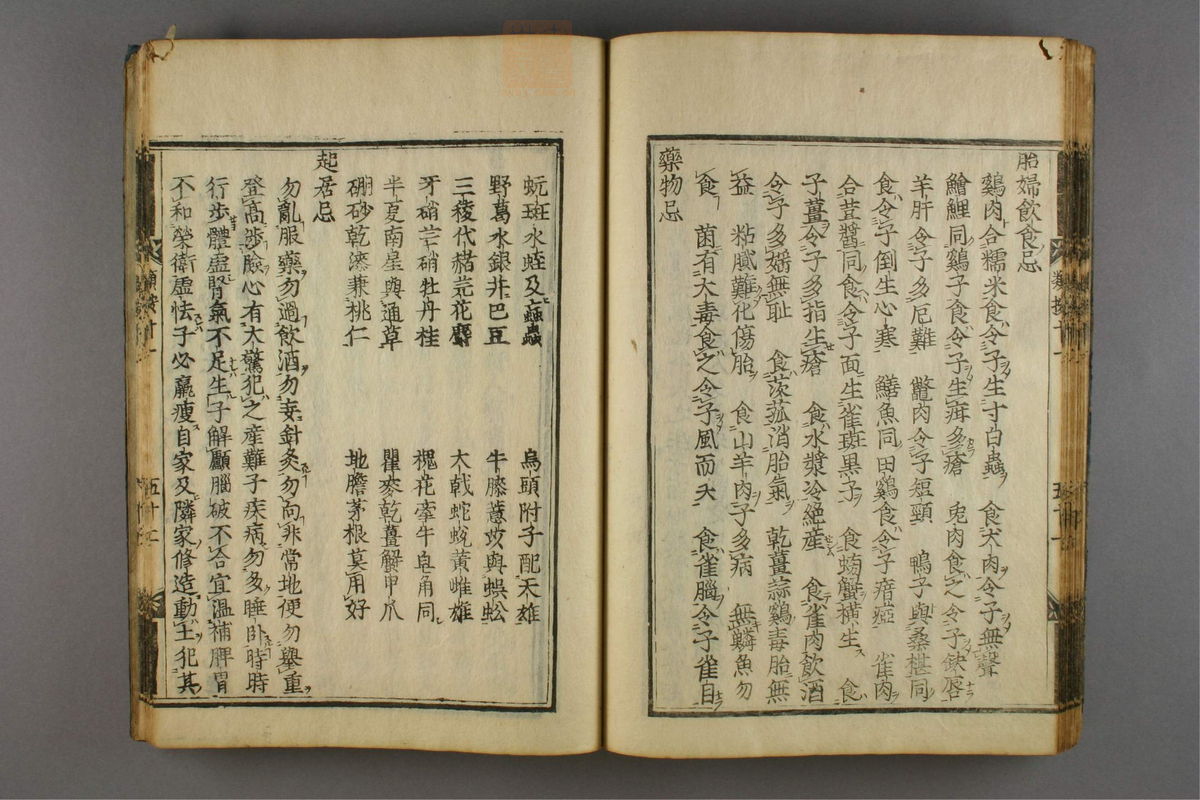 胎婦飲食忌
鷄肉合糯米食令子生寸白蟲　食犬肉令子無聲
鱠鯉同鷄子食令子生疳多瘡　兎肉食之令子缺唇
羊肝令子多厄難　鼈肉令子短頸　鴨子與桑椹同
食令子倒生心寒　鱔魚同田鷄食令子瘖瘂　雀肉
合荳醬同食令子面生雀斑黒子　食螃蟹横生　食
子薑令子多指生瘡　食水漿冷絶産　食雀肉飲酒
令子多婬無耻　食茨菰消胎氣　乾薑蒜鷄毒胎無
益　粘膩難化傷胎　食山羊肉子多病　無鱗魚勿
食　菌有大毒食之令子風而夭　食雀腦令子雀目
藥物忌
蚖斑水蛭及蝱蟲　烏頭附子配天雄
野葛水銀并巴豆　牛膝薏苡與蜈蚣
三稜代赭芫花麝　大戟蛇蛻黄雌雄
牙硝芒硝牡丹桂　槐花牽牛皂角同
半夏南星與通草　瞿麥乾薑蟹甲爪
硇砂乾漆兼桃仁　地膽茅根莫用好
起居忌
勿亂服藥勿過飲酒勿妄針灸勿向非常地便勿舉重
登高渉險心有大驚犯之産難子疾病勿多睡卧時時
行歩體虚腎氣不足生子解顱腦破不合宜温補脾胃
不和榮衛虚怯子必羸瘦自家及隣家修造動土犯其
五十二